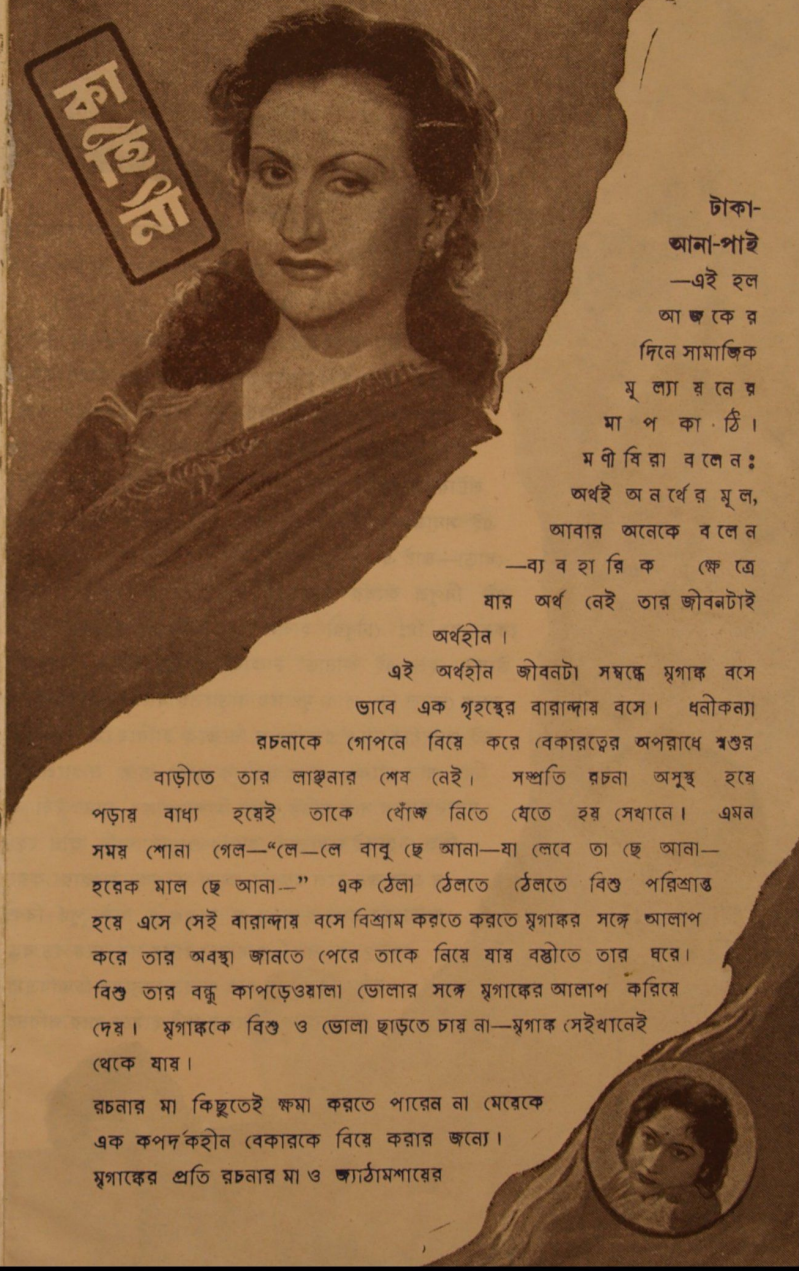 কাহিনী
টাকা-
আনা-পাই
—এই হল
আজকের
দিনে সামাজিক
মূল্যায়নের
মাপকাঠি।
মণীষিরা বলেন:
অর্থই অনর্থের মূল,
আবার অনেকে বলেন
—ব্যবহারিক ক্ষেত্রে
যার অর্থ নেই তার জীবনটাই
অর্থহীন।
এই অর্থহীন জীবনটা সম্বন্ধে মৃগাঙ্ক বসে
ভাবে এক গৃহস্থের বারান্দায় বসে। ধনীকন্যা
রচনাকে গোপনে বিয়ে করে বেকারত্বের অপরাধে শ্বশুর
বাড়ীতে তার লাঞ্ছনার শেষ নেই। সম্প্রতি রচনা অসুস্থ হয়ে
পড়ায় বাধ্য হয়েই তাকে খোঁজ নিতে যেতে হয় সেখানে। এমন
সময় শোনা গেল—“লে—লে বাবু ছে আনা—যা লেবে তা ছে আনা—
হরেক মাল ছে আনা—” এক ঠেলা ঠেলতে ঠেলতে বিশু পরিশ্রান্ত
হয়ে এসে সেই বারান্দায় বসে বিশ্রাম করতে করতে মৃগাঙ্কর সঙ্গে আলাপ
করে তার অবস্থা জানতে পেরে তাকে নিয়ে যায় বস্তীতে তার ঘরে।
বিশু তার বন্ধু কাপড়েওয়ালা ভোলার সঙ্গে মৃগাঙ্কের আলাপ করিয়ে
দেয়। মৃগাঙ্ককে বিশু ও ভোলা ছাড়তে চায় না—মৃগাঙ্ক সেইখানেই
থেকে যায়।
রচনার মা কিছুতেই ক্ষমা করতে পারেন না মেয়েকে
এক কপর্দকহীন বেকারকে বিয়ে করার জন্যে।
মৃগাঙ্কের প্রতি রচনার মা ও জ্যাঠামশায়ের